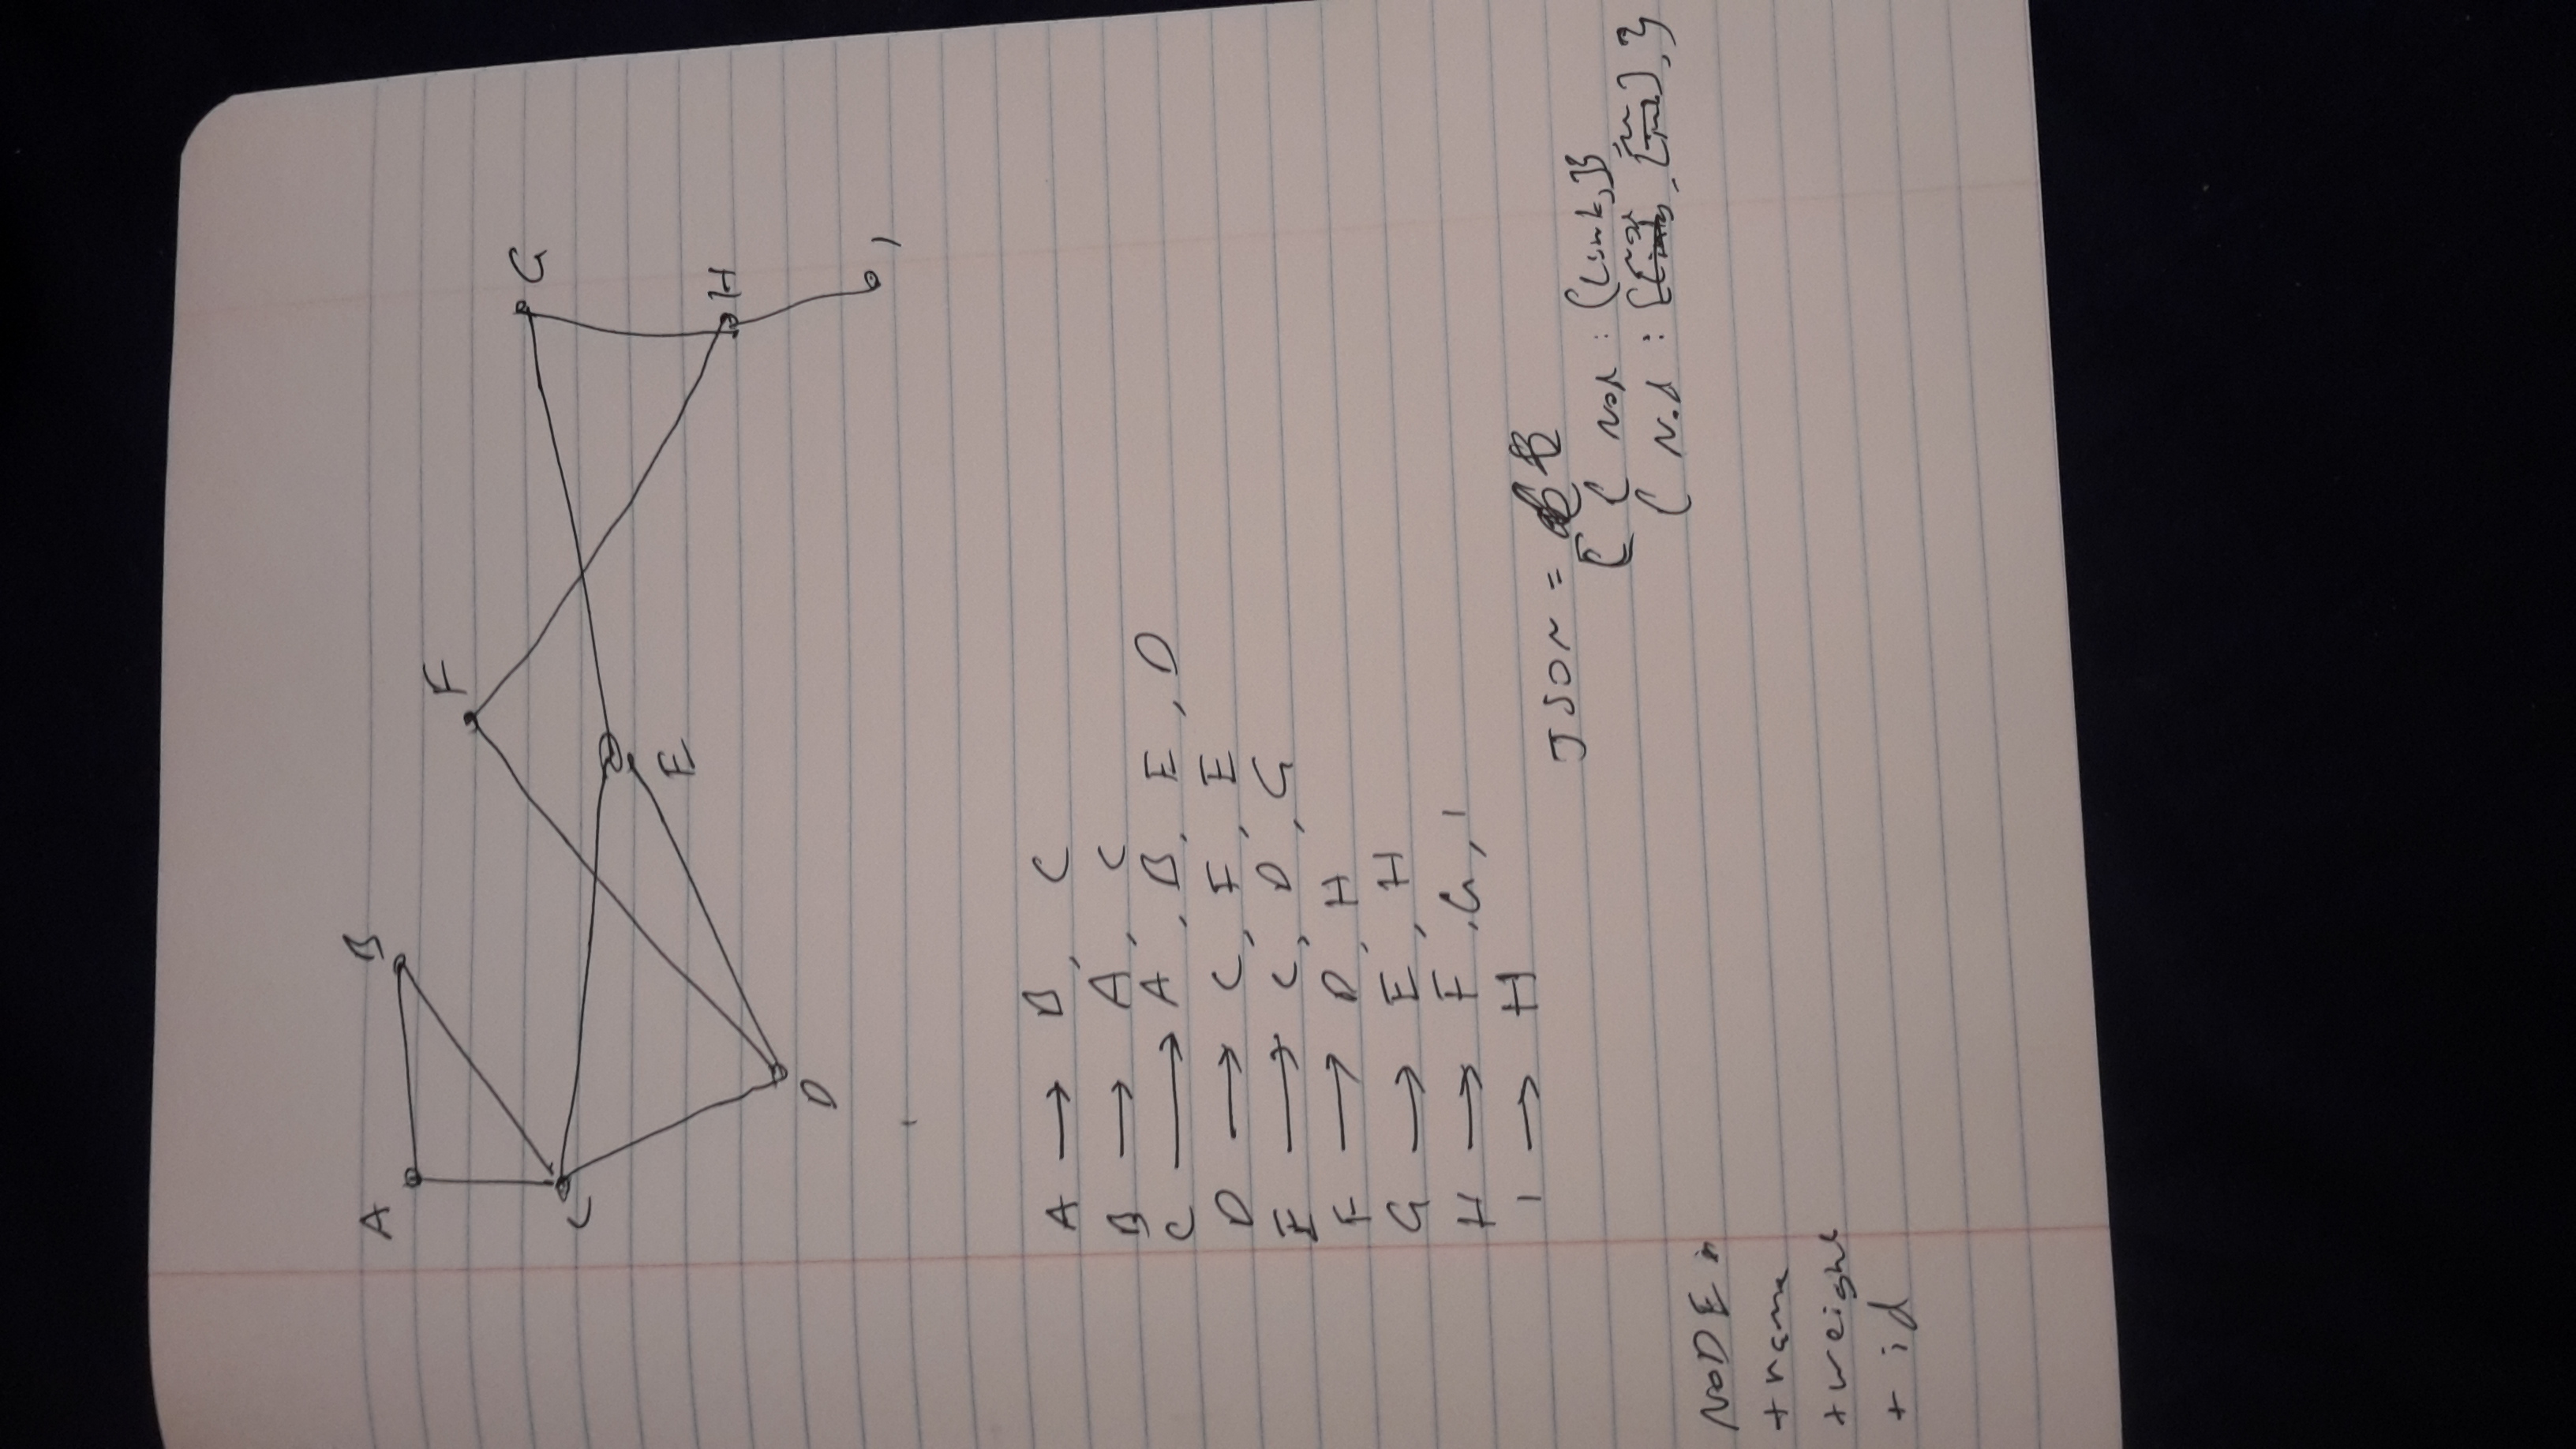 A
B
C
D
E
F
G
H
I
A → B, C
B → A, C
C → A, B, E, D
D → C, F, E
E → C, D, G
F → D, H
G → E, H
H → F, G, I
I → H
JSON =
[ { Nod : [Link,]}
{ Nod :
NODE
+ name
+ weight
+ id